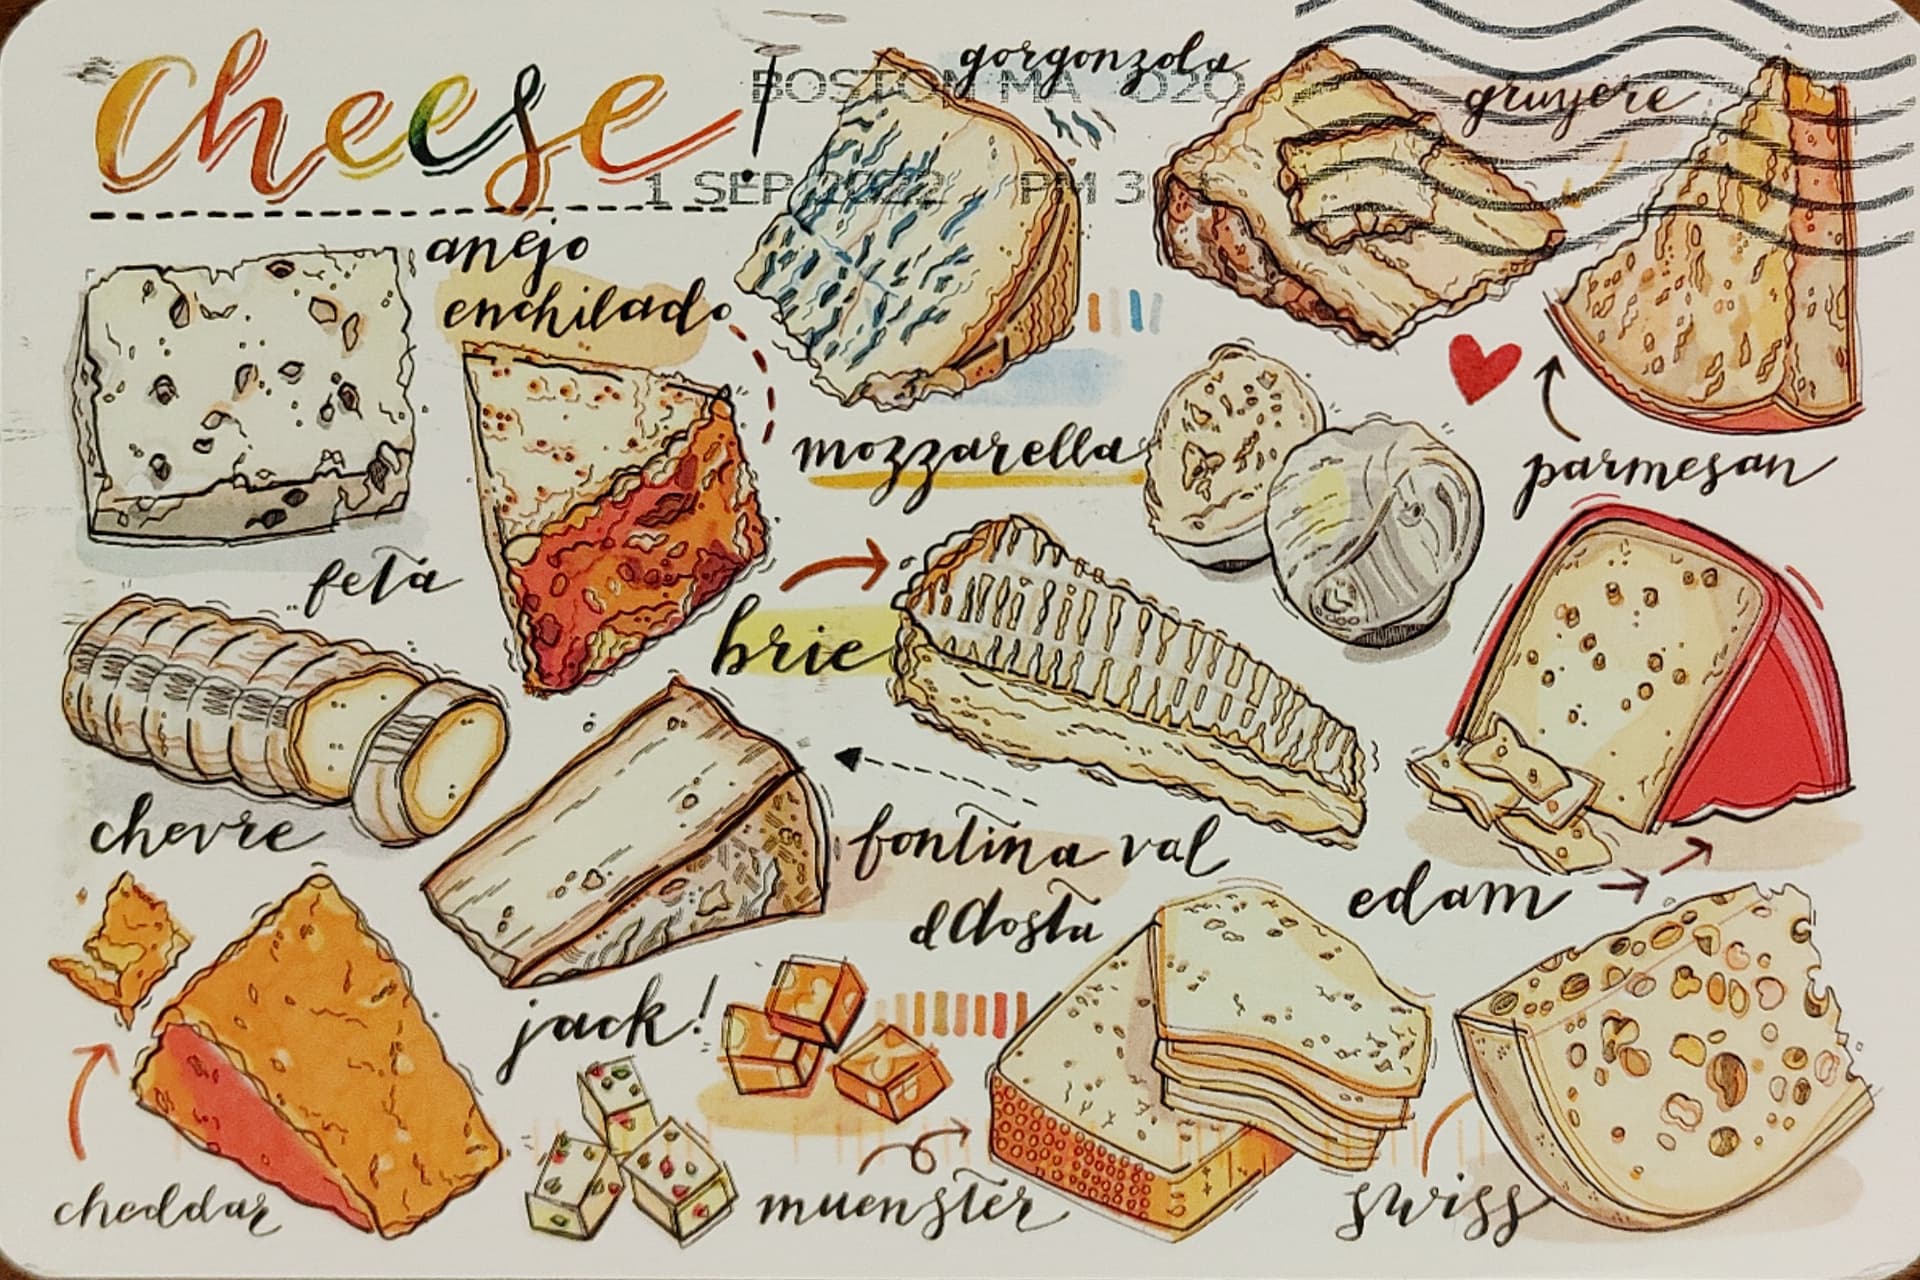 Cheese!
gorgonzola
BOSTON MA 020
gruyere
1 SEP 2022 PM 3
anejo
enchilado
mozzarella
parmesan
feta
brie
chevre
fontina val
d'Aosta
edam
jack!
cheddar
muenster
swiss